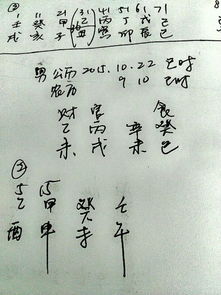 ② 1 11 21 31 41 51 61 71
壬 癸 甲 乙 丙 丁 戊 己
戌 亥 子 丑 寅 卯 辰 巳
男 公历 2015.10.22 巳时
农历 9 10 巳时
财 官 食
乙 丙 辛 癸
未 戌 未 巳
③
5 15
乙 甲 癸 壬
酉 申 未 午